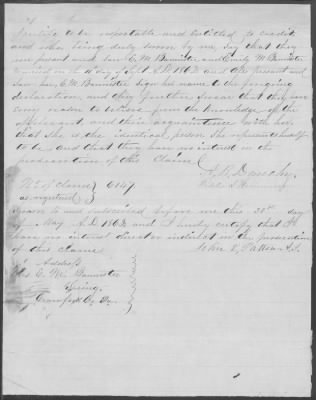 to be respectable and entitled to credit
and who being duly sworn by me, say that they
were present and saw C. M. Bannister and Emily M Bannister
married on the 11 day of Sept. A.D. 1862 and was present and
saw her, E. M. Bannister sign her name to the foregoing
declaration, and they further swear that they have
every reason to believe from the knowledge of the
applicant and their acquaintance with her,
that she is the identical person she represents herself
to be and that they have no interest in the
prosecution of this Claim
No. of claim 6147
as registered
Sworn to and subscribed before me this 28th day
of May A.D. 1863 and I hereby certify that I
have no interest direct or indirect in the prosecution
of this claim
John E. Patton
Address
Mrs E. M. Bannister
Spring
Crawford Co. Pa.